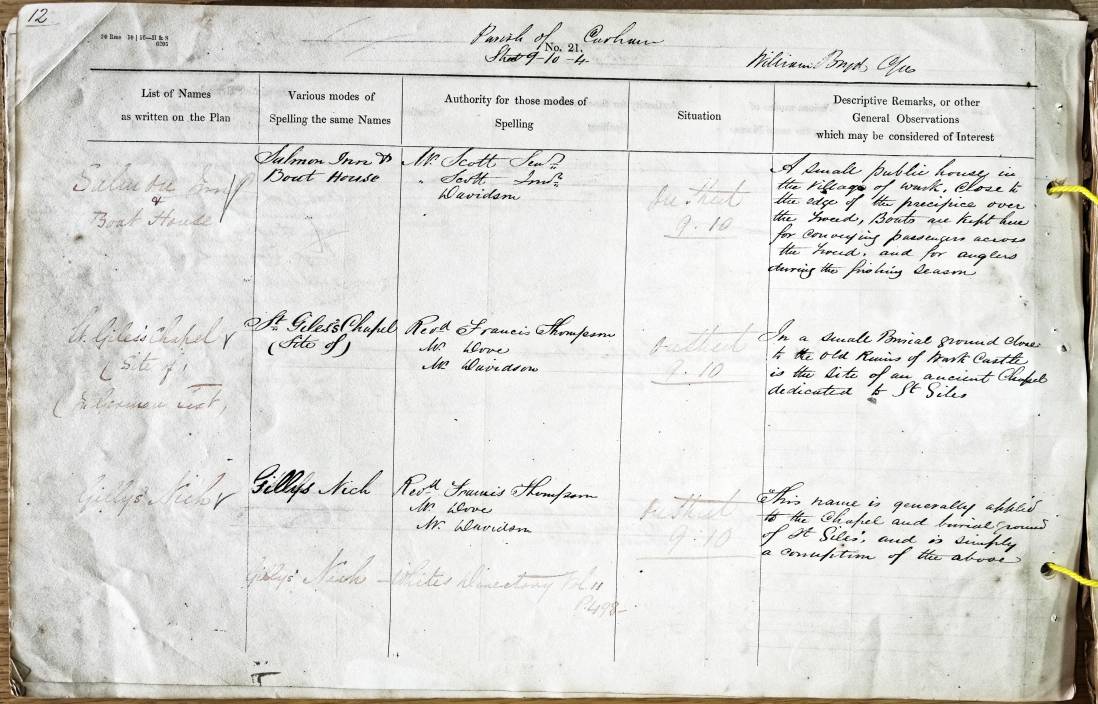 12
20 Rms 10 | 56—H & S
6205
Parish of Carham
No. 21.
Sheet 9-10-4
William Boyd C/us
List of Names
as written on the Plan
Various modes of
Spelling the same Names
Authority for those modes of
Spelling
Situation
Descriptive Remarks, or other
General Observations
which may be considered of Interest
Salmon Inn
&
Boat House
Salmon Inn &
Boat House
Mr. Scott Senr.
" Scott Junr.
Davidson
On Sheet
9.10
A Small public house, in
the Village of Wark, Close to
the edge of the precipice over
the Tweed, Boats are kept here
for conveying passengers across
the Tweed, and for anglers
during the fishing Season
St. Giles's Chapel
(Site of)
St. Giles's Chapel
(Site of)
Revd. Francis Thompson
Mr. Dove
Mr. Davidson
On Sheet
9.10
In a small Burial ground close
to the Old Ruins of Wark Castle
is the Site of an ancient Chapel
dedicated to St Giles
Gillys Nich
Gillys Nich
Revd. Francis Thompson
Mr. Dove
Mr. Davidson
On Sheet
9.10
This name is generally applied
to the Chapel and burial ground
of St Giles', and is simply
a corruption of the above
Gillys' Nich — Whites Directory Vol 11
P. 498